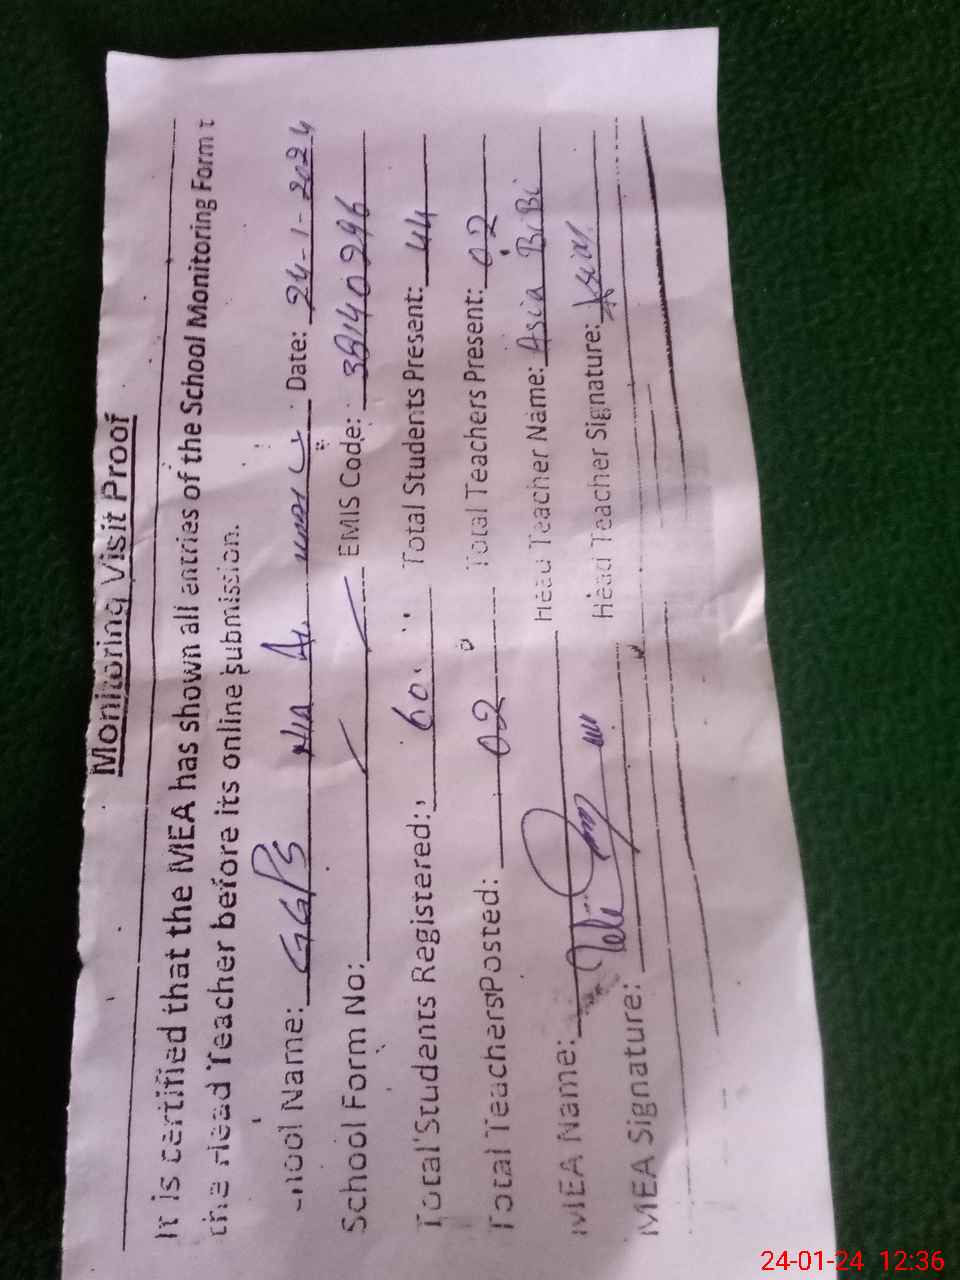 Monitoring Visit Proof
It is certified that the MEA has shown all entries of the School Monitoring Form t
the Head Teacher before its online submission.
hool Name: GGPS Date: 24-1-2024
School Form No: EMIS Code: 38140296
Total Students Registered: 60 Total Students Present: 44
Total Teachers Posted: 02 Total Teachers Present: 02
MEA Name: Head Teacher Name: Asia BiBi
MEA Signature: Head Teacher Signature: Asia
24-01-24 12:36